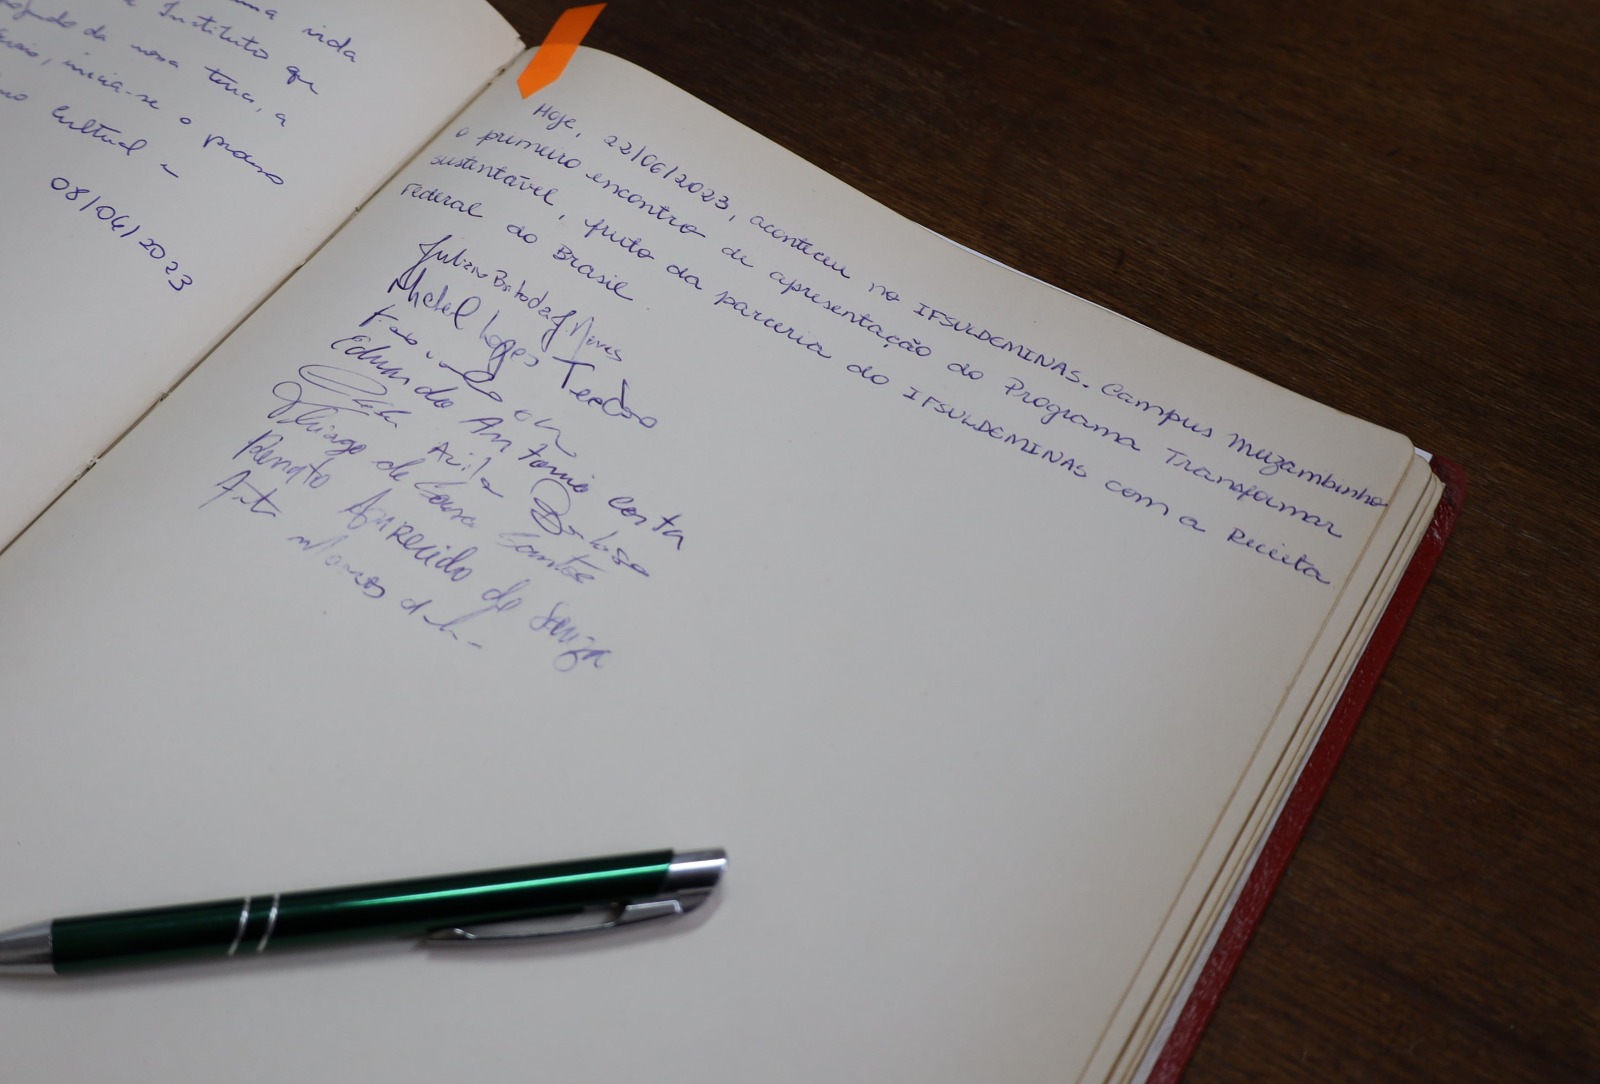 vida
Instituto que
da nossa terra, a
inicia-se o processo
cultural e
08/06/2023
Hoje, 22/06/2023, aconteceu no IFSULDEMINAS. Campus Muzambinho
o primeiro encontro de apresentação do Programa Transformar
sustentável, fruto da parceria do IFSULDEMINAS com a Receita
Federal do Brasil.
Neves
Michel Lopes Teodoro
Eduardo Antonio Costa
Avila Barbosa
Thiago de Sousa Santos
Renato Aparecido de Souza